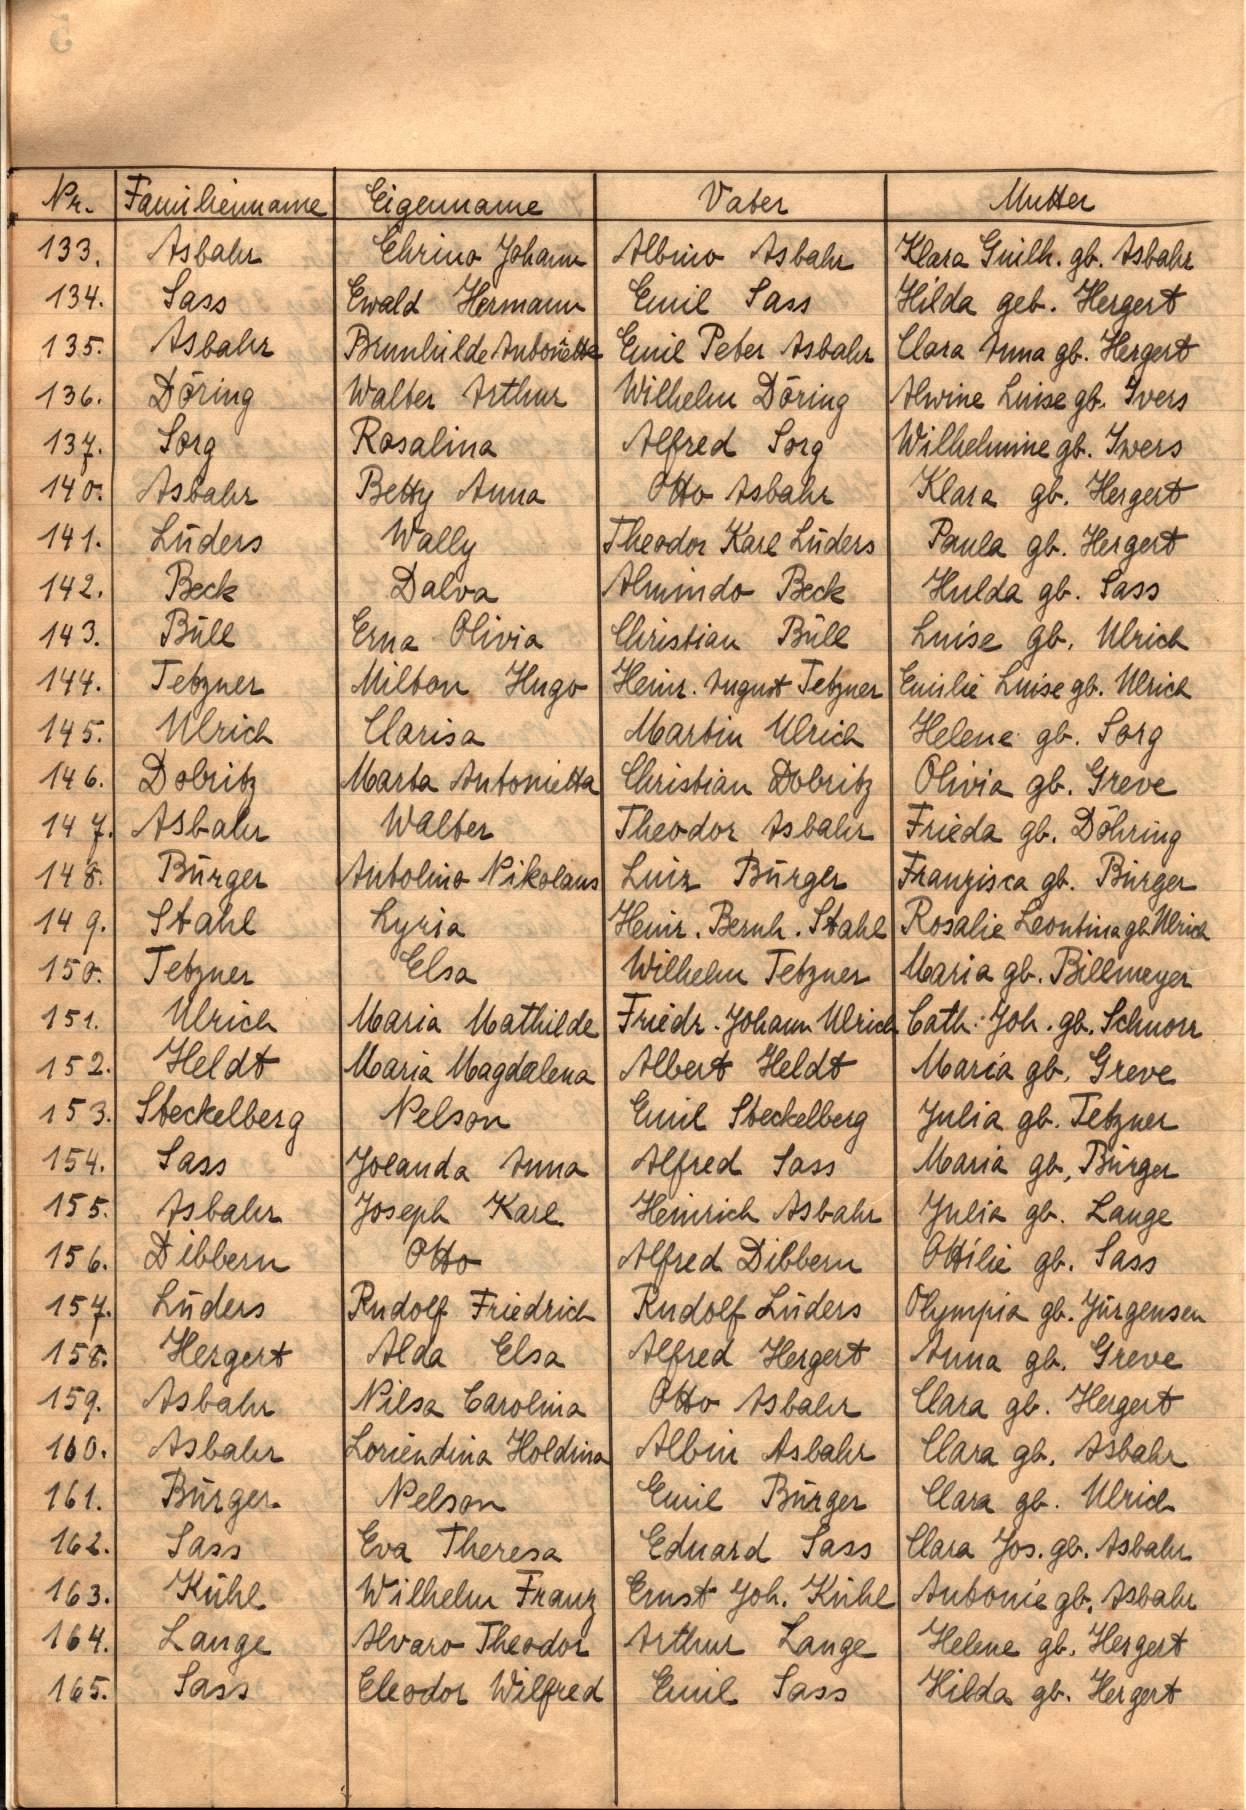 Nr. Familienname Eigenname Vater Mutter
133. Asbahr Ehrino Johann Albino Asbahr Klara Guilh. gb. Asbahr
134. Sass Ewald Hermann Emil Sass Hilda geb. Hergert
135. Asbahr Brunhilde Antonietta Emil Peter Asbahr Clara Anna gb. Hergert
136. Döring Walter Arthur Wilhelm Döring Alwine Luise gb. Ivers
137. Sorg Rosalina Alfred Sorg Wilhelmine gb. Iwers
140. Asbahr Betty Anna Otto Asbahr Klara gb. Hergert
141. Lüders Wally Theodor Karl Lüders Paula gb. Hergert
142. Beck Dalva Almindo Beck Hulda gb. Sass
143. Büll Erna Olivia Christian Büll Luise gb. Ulrich
144. Tetzner Milton Hugo Heinr. August Tetzner Emilie Luise gb. Ulrich
145. Ulrich Clarisa Martin Ulrich Helene gb. Sorg
146. Dobritz Marta Antonietta Christian Dobritz Olivia gb. Greve
147. Asbahr Walter Theodor Asbahr Frieda gb. Döhring
148. Bürger Antolino Nikolaus Luiz Bürger Franzisca gb. Bürger
149. Stahl Lyria Heinr. Bernh. Stahl Rosalie Leontina gb. Ulrich
150. Tetzner Elsa Wilhelm Tetzner Maria gb. Billmeyer
151. Ulrich Maria Mathilde Friedr. Johann Ulrich Cath. Joh. gb. Schnorr
152. Heldt Maria Magdalena Albert Heldt Maria gb. Greve
153. Steckelberg Nelson Emil Steckelberg Julia gb. Tetzner
154. Sass Jolanda Anna Alfred Sass Maria gb. Bürger
155. Asbahr Joseph Karl Heinrich Asbahr Julia gb. Lange
156. Dibbern Otto Alfred Dibbern Ottilie gb. Sass
157. Lüders Rudolf Friedrich Rudolf Lüders Olympia gb. Jürgensen
158. Hergert Alda Elsa Alfred Hergert Anna gb. Greve
159. Asbahr Nilsa Carolina Otto Asbahr Clara gb. Hergert
160. Asbahr Loriendina Holdina Albin Asbahr Clara gb. Asbahr
161. Bürger Nelson Emil Bürger Clara gb. Ulrich
162. Sass Eva Theresa Eduard Sass Clara Jos. gb. Asbahr
163. Kühl Wilhelm Franz Ernst Joh. Kühl Antonie gb. Asbahr
164. Lange Alvaro Theodor Arthur Lange Helene gb. Hergert
165. Sass Eleodor Wilfred Emil Sass Hilda gb. Hergert